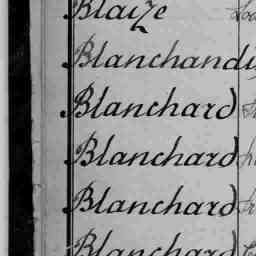 Blaize
Blanchandi
Blanchard
Blanchard
Blanchard
Blanchard